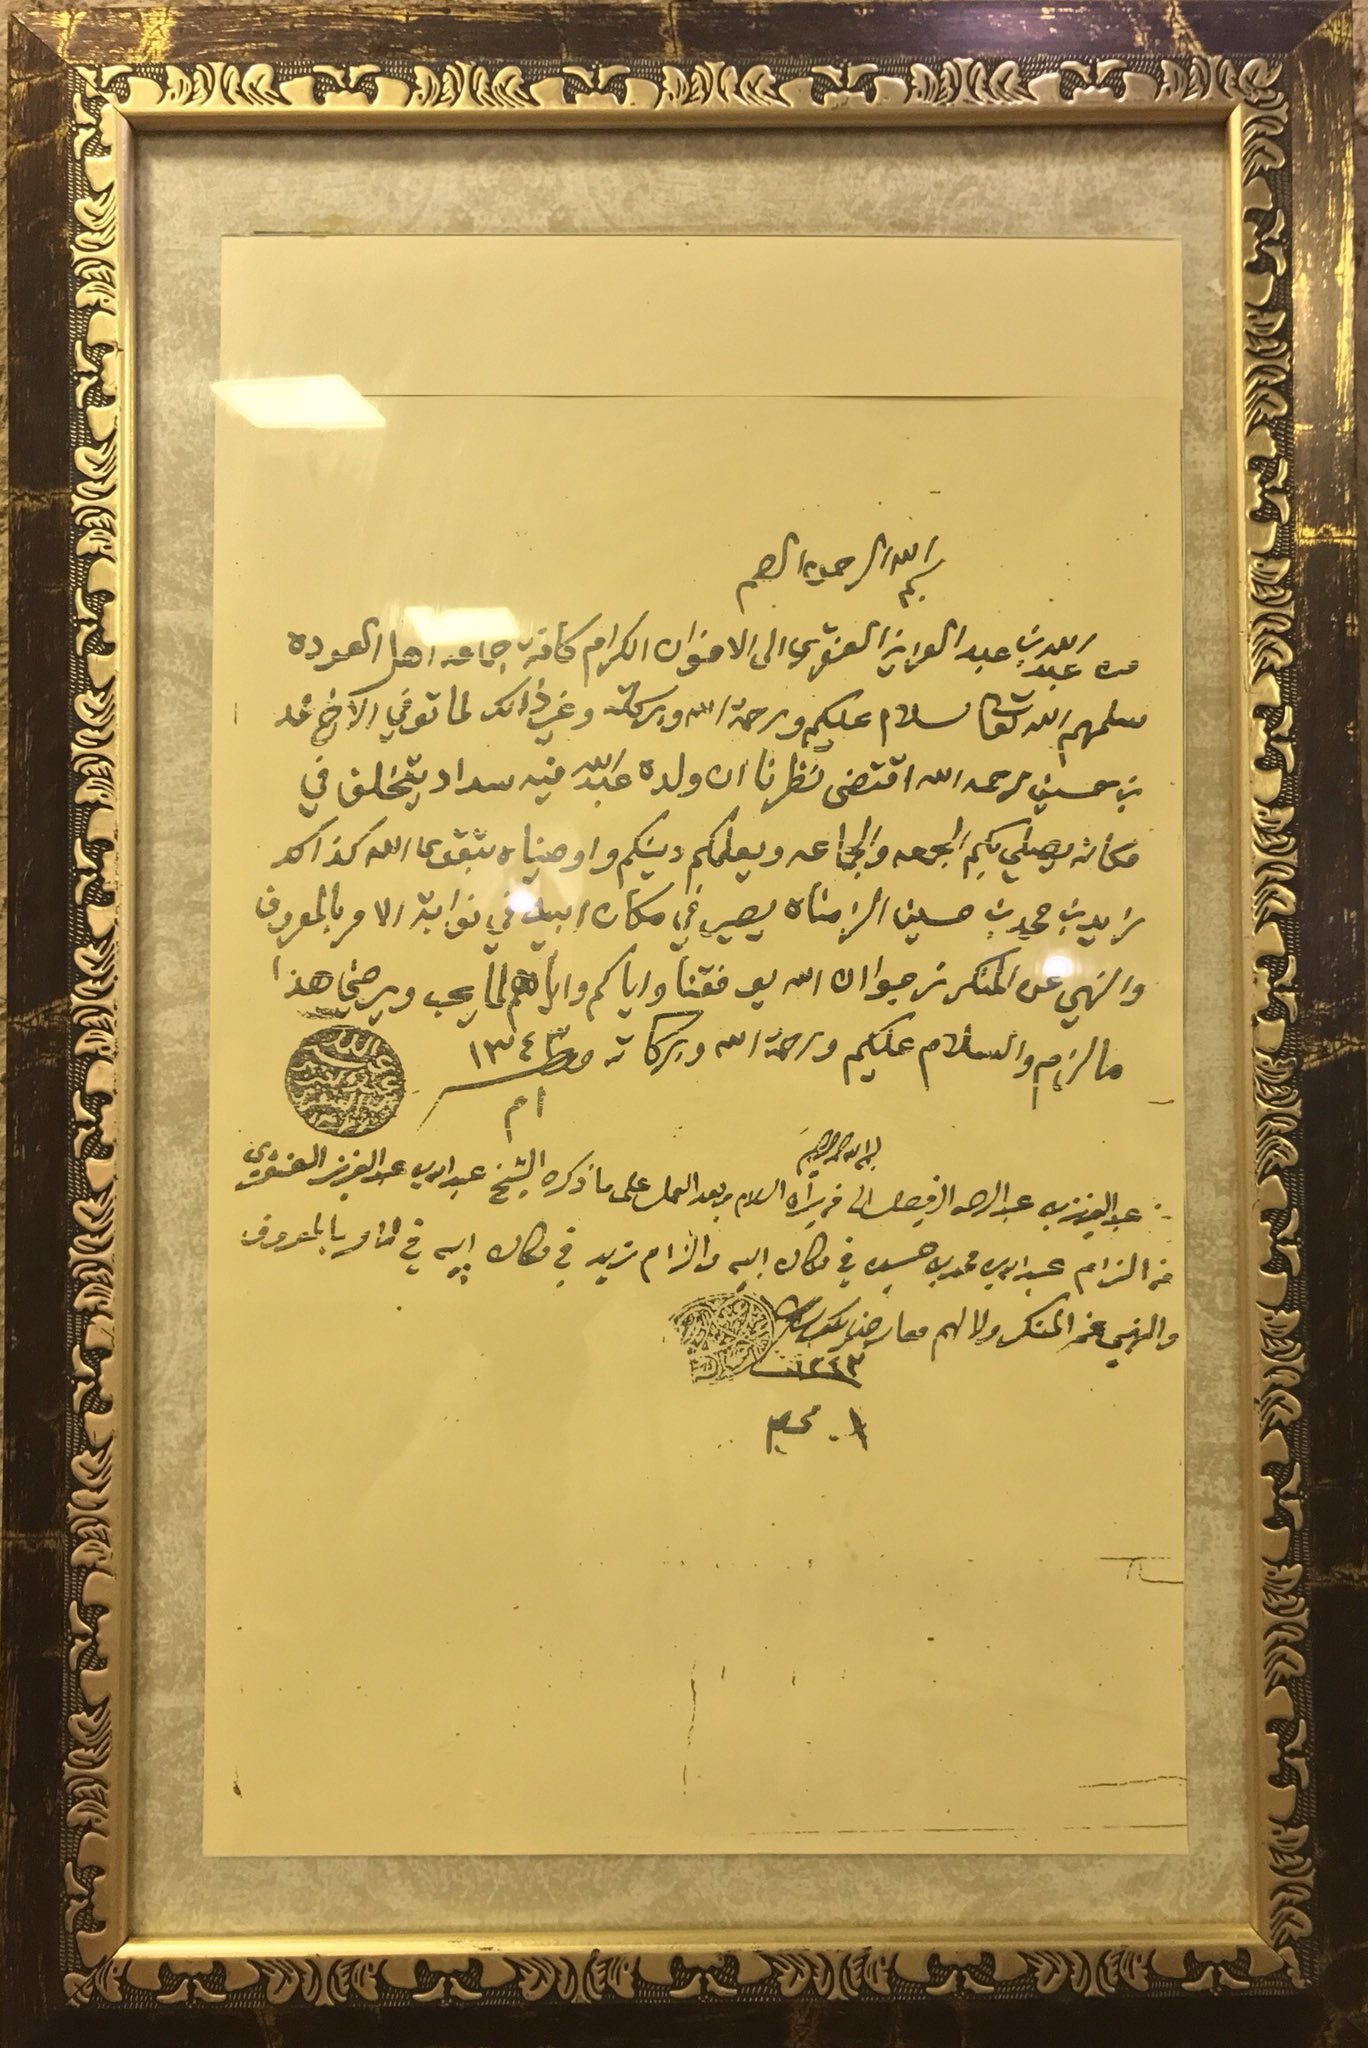 بسم الله الرحمن الرحيم
من عبدالله بن عبد العزيز العنقري الى الاخوان الكرام كافة جماعه اهل العوده
سلمهم الله تعالى سلام عليكم ورحمة الله وبركاته وغير ذالك لما توفي الاخ محمد
بن حسين رحمه الله اقتضى نظرنا ان ولده عبدالله فيه سداد يتخلف في
مكانه يصلي بكم الجمعه والجماعه ويعلمكم دينكم واوصيناه بتقوى الله كذالك
زايد بن محمد بن حسين الزمناه يصير في مكان ابيه في نوابة الامر بالمعروف
والنهي عن المنكر نرجوا ان الله يوفقنا واياكم واياهم لما يحب ويرضى هذا
مالزم والسلام عليكم ورحمة الله وبركاته ١٣٤٣
ام
بسم الله الرحمن الرحيم
من عبدالعزيز بن عبدالرحمن الفيصل الى من يراه السلام وبعد العمل على ما ذكره الشيخ عبدالله بن عبدالعزيز العنقري
من الزام عبدالله بن محمد بن حسين في مكان ابيه والزام زيد في مكان ابيه في الامر بالمعروف
والنهي عن المنكر ولا لهم معارض
١٣٤٣